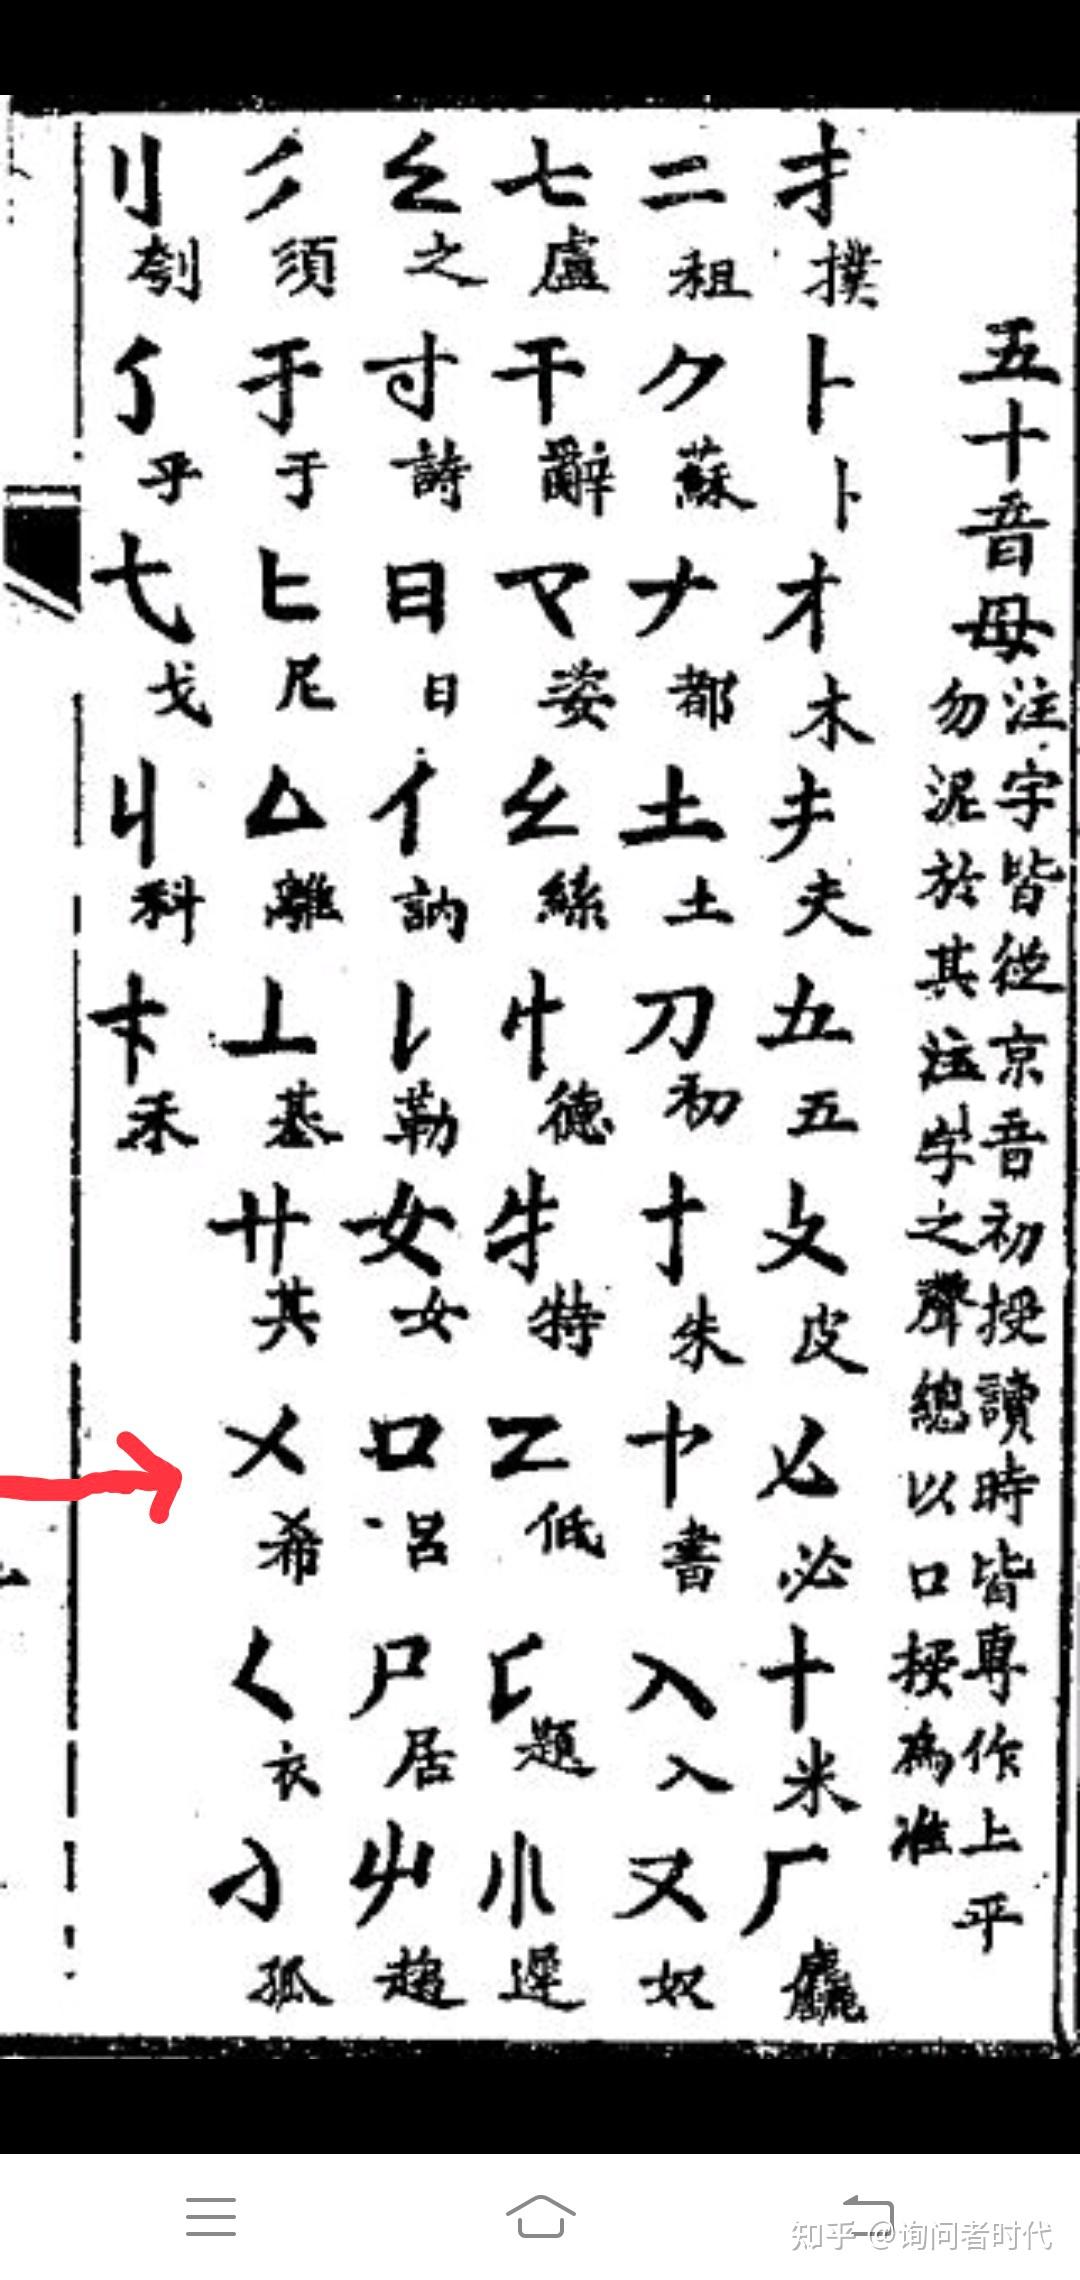 五十音母
注字皆從京音初授讀時皆專作上平
勿泥於其注字之聲總以口授為准
扌撲 卜卜 才木 夫 五 攵皮 必 十米 厂
二租 ク蘇 ナ都 土土 刀初 十朱 書 入入 又奴
七盧 干辭 マ姿 幺絲 德 牛特 工低 匚題 小遲
之 寸詩 日日 亻訥 勒 女女 口呂 尸居 趨
須 于于 匕尼 厶離 丄基 廾其 㐅希 く衣 孤
刂刳 乎 弋戈 丩科 禾
知乎 @询问者时代